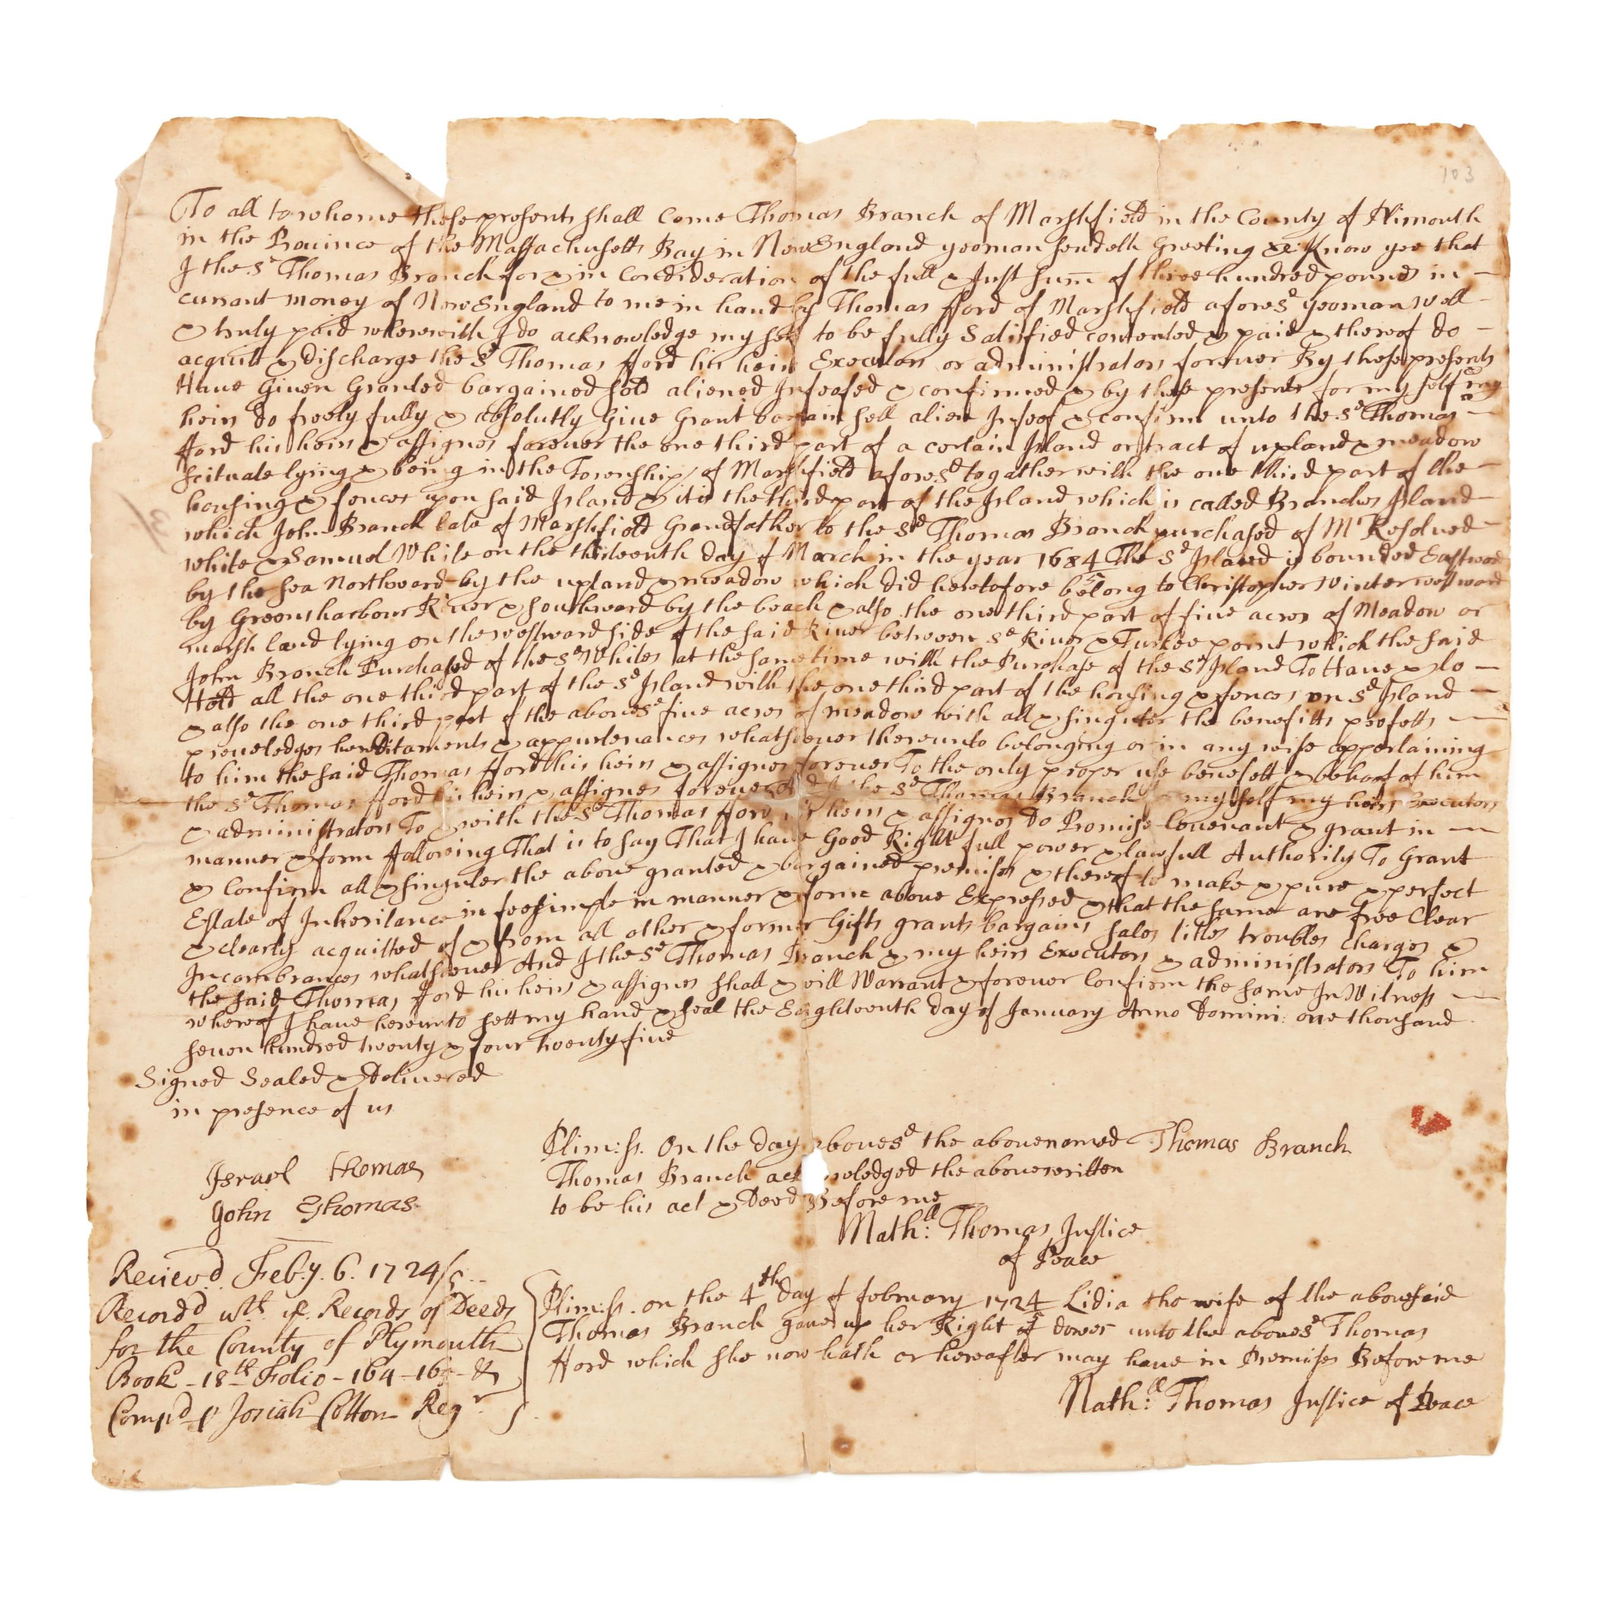 103
To all to whome these presents shall come Thomas Branch of Marshfield in the County of Plimouth
in the Prouince of the Massachusetts Bay in New England yeoman sendeth Greeting &c Know yee that
I the sd Thomas Branch for & in Concideration of the full & Just sum of three hundred pounds in
currant money of New England to me in hand by Thomas fford of Marshfield aforesd yeoman well
& truly paid wherewith I do acknowledge my self to be fully Satisfied contented & paid & thereof do
acquitt & discharge the sd Thomas fford his heirs Executors or administrators forever By these presents
Haue Giuen Granted bargained sold aliened Infeofed & confirmed & by these presents for my self & my
heirs do freely fully & absolutly Giue Grant bargain sell alien Infeof & confirm unto the sd Thomas
fford his heirs & assignes foreuer the one third part of a certain Island or tract of upland & meadow
scituate lying & being in the Township of Marshfield aforesd togather with the one third part of the
housing & fences upon said Island & it is the third part of the Island which is called Branches Island
which John Branch late of Marshfield Grandfather to the sd Thomas Branch purchased of Mr Resolued
white & Samuel White on the thirteenth day of March in the year 1684 The sd Island is bounded Eastward
by the sea Northward by the upland & meadow which did heretofore belong to Christopher Winter westward
by Greensharbour Riuer & southward by the beach & also the one third part of fiue acres of Meadow or
marsh land lying on the westward side of the said Riuer between sd Riuer & Turkee point which the said
John Branch Purchased of the sd Whites at the same time with the Purchase of the sd Island To Haue & to
Hold all the one third part of the sd Island with the one third part of the housing & fences on sd Island
& also the one third part of the abouesd fiue acres of meadow with all & singuler the benefitts profetts
priueledges hereditaments & appurtenances whatsoeuer thereunto belonging or in any wise appertaining
to him the said Thomas fford his heirs & assignes foreuer To the only proper use benefett & behoof of him
the sd Thomas fford his heirs & assignes foreuer And I the sd Thomas Branch for my self my heirs Executors
& administrators To & with the sd Thomas fford his heirs & assignes do Promise Couenant & grant in
manner & form following That is to say That I haue Good Right full power & lawfull Authority To Grant
& Confirm all & singuler the aboue granted & bargained premises & thereof to make & pure & perfect
Estate of Inheritance in fee simple in manner & form aboue Expressed & that the same are free Clear
& clearly acquitted of & from all other & former Gifts grants bargains sales titles troubles charges &
Incombrances whatsoeuer And I the sd Thomas Branch & my heirs Executors & administrators To him
the said Thomas fford his heirs & assignes shall & will Warrant & foreuer Confirm the same In Witness
whereof I haue hereunto sett my hand & seal the Eighteenth day of January Anno Domini: one thousand
seuen hundred twenty & four twenty fiue
Signed Sealed & Deliuered
in presence of us
Israel Thomas
John Thomas
Plim: ss. On the day abouesd the abouenamed
Thomas Branch acknowledged the abouewritten
to be his act & Deed Before me
Nathll: Thomas Justice
of Peace
Thomas Branch
Receiv'd Feby. 6. 1724/5
Record'd wth ye Records of Deeds
for the County of Plymouth
Book - 18th Folio - 164 - 165 - &
Comp'd pr Josiah Cotton Regr
Plim: ss. on the 4th day of february 1724 Lidia the wife of the abouesaid
Thomas Branch gaue up her Right of dower unto the abouesd Thomas
fford which she now hath or hereafter may haue in Premises Before me
Nathll: Thomas Justice of Peace